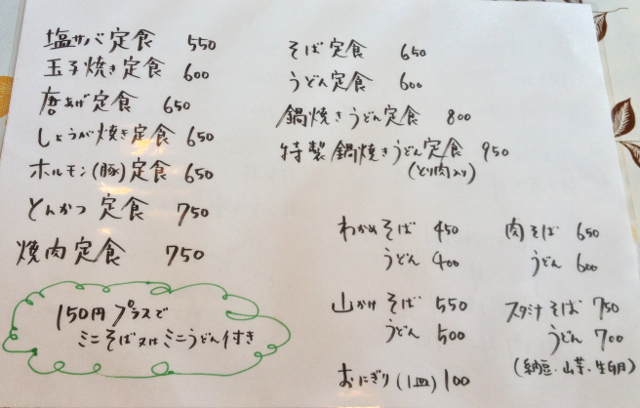 塩サバ定食 550
玉子焼き定食 600
唐あげ定食 650
しょうが焼き定食 650
ホルモン(豚)定食 650
とんかつ定食 750
焼肉定食 750
150円プラスで
ミニそば又はミニうどん付き
そば定食 650
うどん定食 600
鍋焼きうどん定食 800
特製鍋焼きうどん定食 950
(とり肉入り)
わかめそば 450
うどん 400
山かけそば 550
うどん 500
おにぎり(1皿) 100
肉そば 650
うどん 600
スタミナそば 750
うどん 700
(納豆・山芋・生卵)